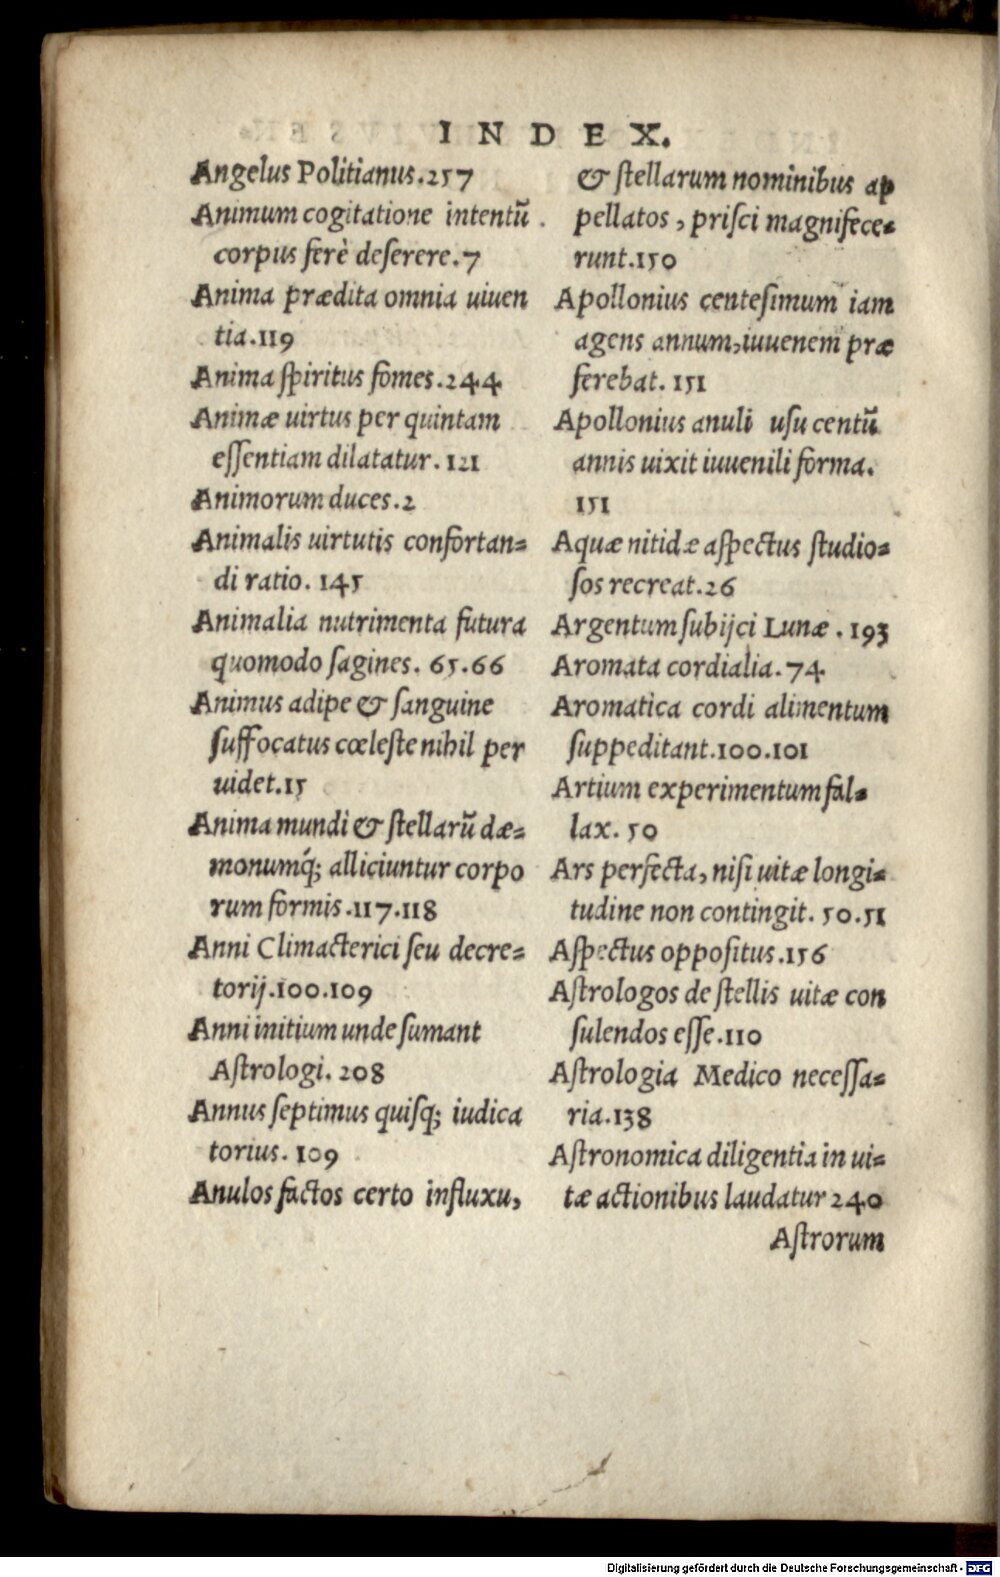 INDEX.
Angelus Politianus.257
Animum cogitatione intentū
corpus ferè deserere.7
Anima prædita omnia uiuen
tia.119
Anima spiritus fomes.244
Animæ uirtus per quintam
essentiam dilatatur.121
Animorum duces.2
Animalis uirtutis confortan=
di ratio. 145
Animalia nutrimenta futura
quomodo sagines. 65.66
Animus adipe & sanguine
suffocatus cœleste nihil per
uidet.15
Anima mundi & stellarū dæ=
monumq́; alliciuntur corpo
rum formis.117.118
Anni Climacterici seu decre=
torij.100.109
Anni initium unde sumant
Astrologi. 208
Annus septimus quisq; iudica
torius. 109
Anulos factos certo influxu,
& stellarum nominibus ap
pellatos, prisci magnifece=
runt.150
Apollonius centesimum iam
agens annum, iuuenem præ
ferebat. 151
Apollonius anuli usu centū
annis uixit iuuenili forma.
151
Aquæ nitidæ aspectus studio=
sos recreat.26
Argentum subijci Lunæ. 193
Aromata cordialia.74
Aromatica cordi alimentum
suppeditant.100.101
Artium experimentum fal=
lax. 50
Ars perfecta, nisi uitæ longi=
tudine non contingit. 50.51
Aspectus oppositus.156
Astrologos de stellis uitæ con
sulendos esse.110
Astrologia Medico necessa=
ria.138
Astronomica diligentia in ui=
tæ actionibus laudatur 240
Astrorum
Digitalisierung gefördert durch die Deutsche Forschungsgemeinschaft - DFG